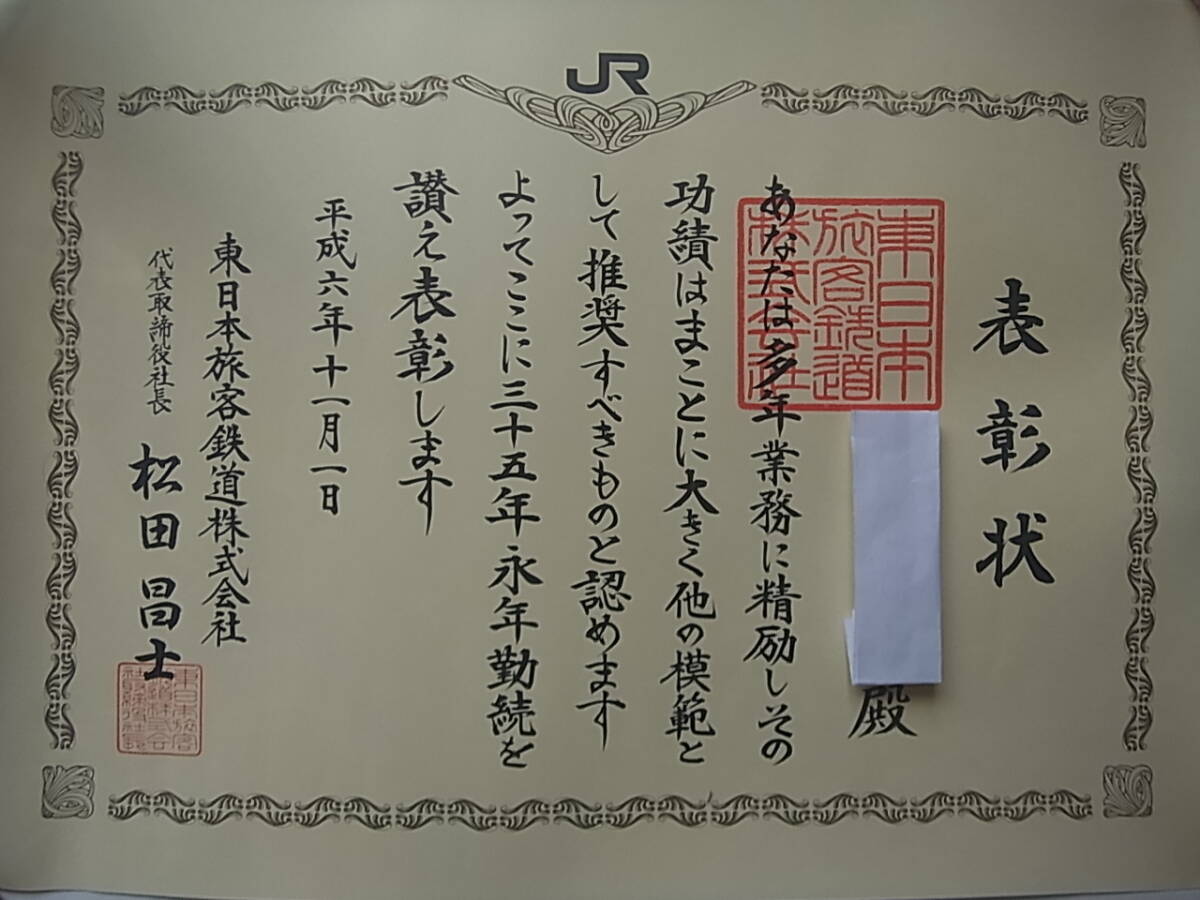 JR
表彰状
殿
あなたは多年業務に精励しその
功績はまことに大きく他の模範と
して推奨すべきものと認めます
よってここに三十五年永年勤続を
讃え表彰します
平成六年十一月一日
東日本旅客鉄道株式会社
代表取締役社長
松田昌士
東日本
旅客鉄道
株式会社